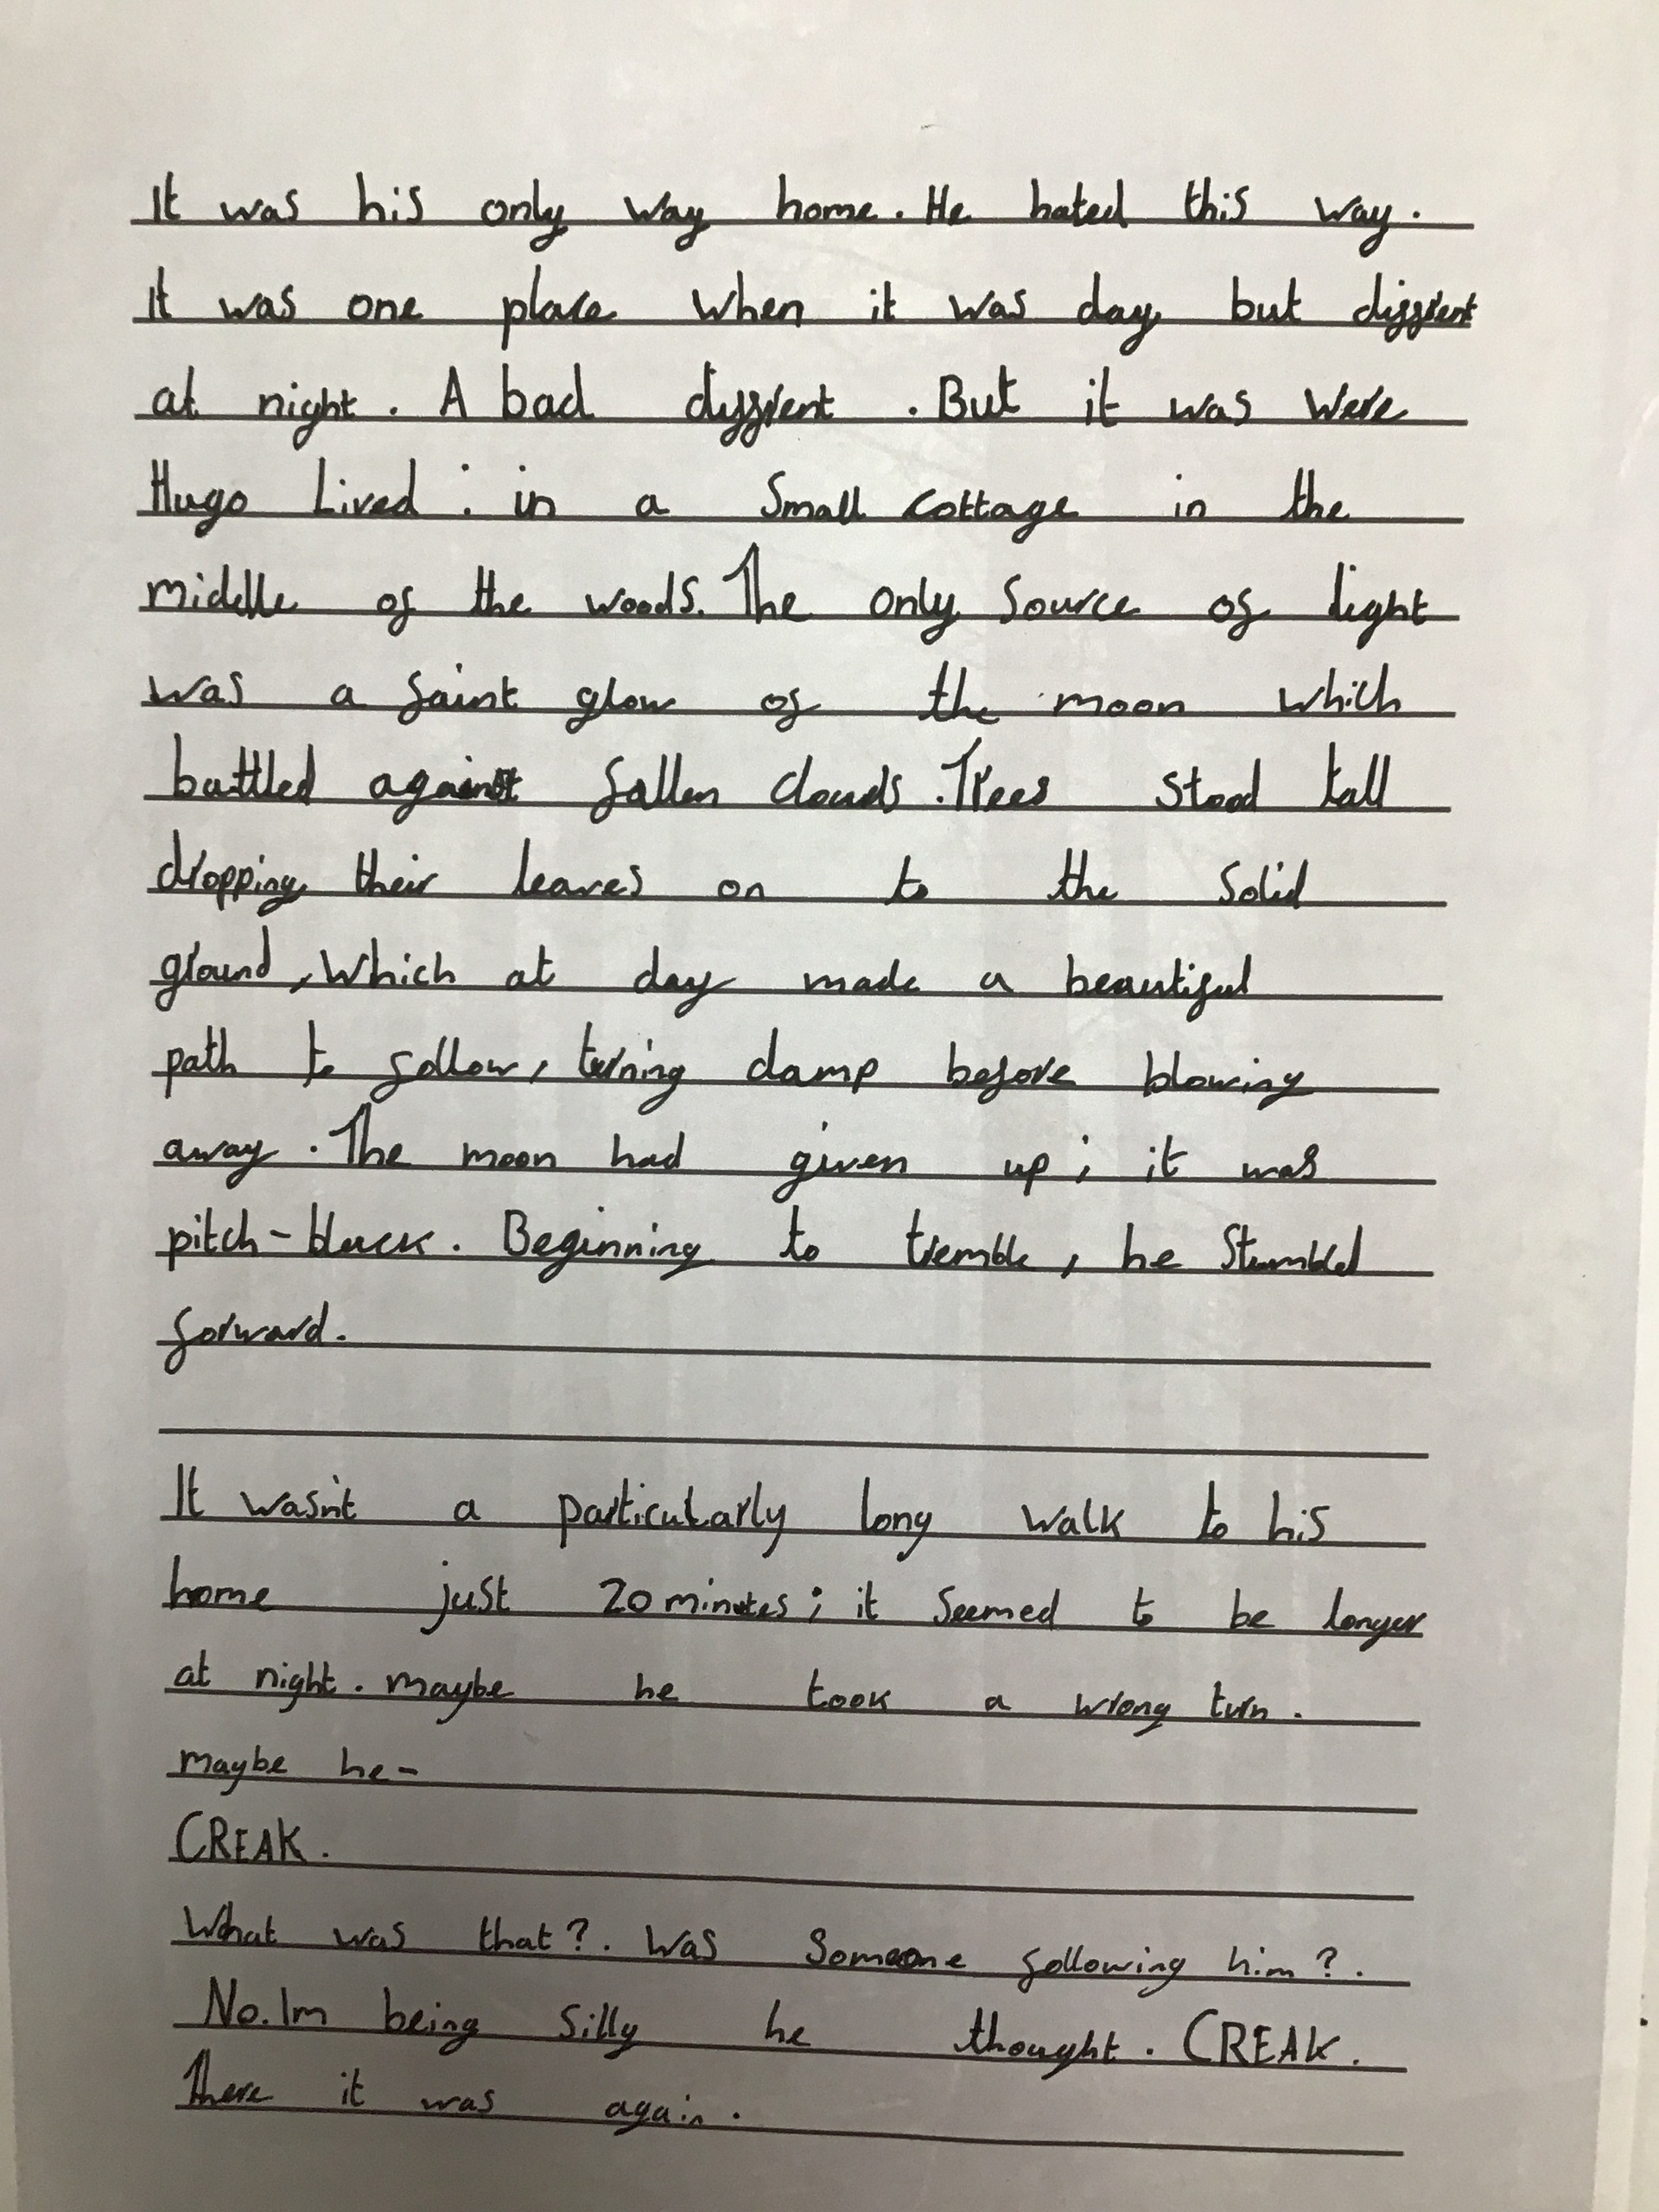 It was his only way home. He hated this way.
It was one place when it was day but diffrent
at night. A bad diffrent. But it was were
Hugo Lived : in a small cottage in the
middle of the woods. The only source of light
was a faint glow of the moon which
battled against fallen clouds. Trees stood tall
dropping their leaves on to the solid
ground, which at day made a beautiful
path to follow, turning damp before blowing
away. The moon had given up; it was
pitch-black. Beginning to tremble, he stumbled
forward.
It wasn't a particularly long walk to his
home just 20 minutes; it seemed to be longer
at night. maybe he took a wrong turn.
maybe he-
CREAK.
What was that?. Was someone following him?.
No. Im being silly he thought. CREAK.
There it was again.